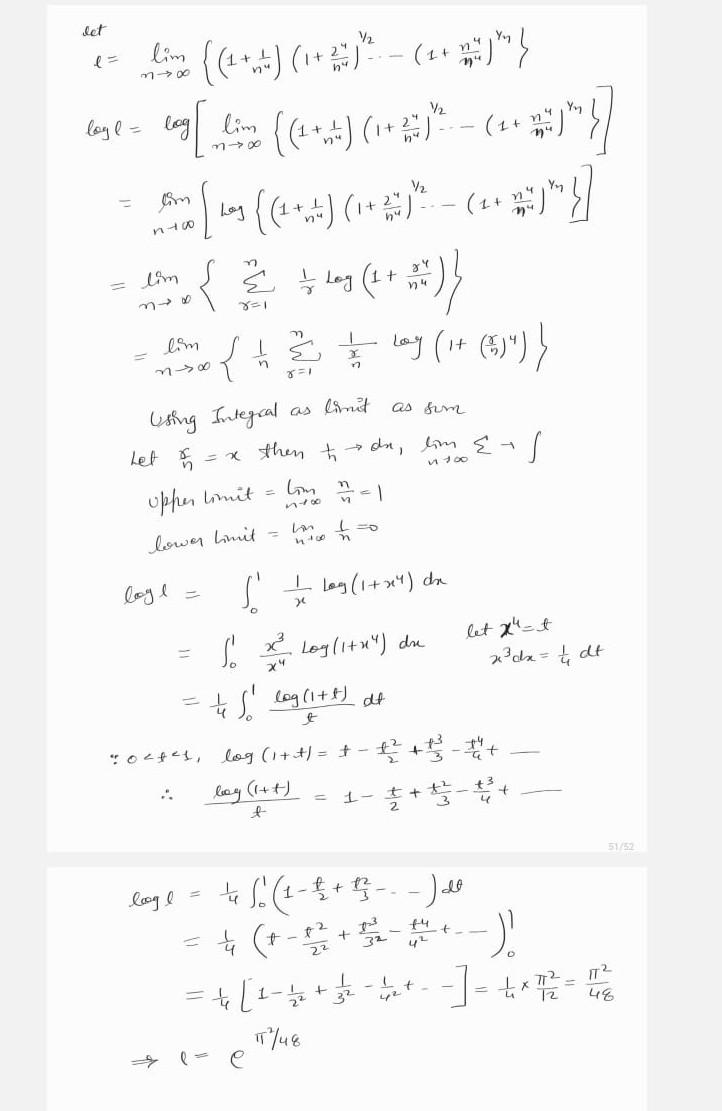 let
l = lim n→∞ { (1 + 1/n⁴) (1 + 2⁴/n⁴)^1/2 ... - (1 + n⁴/n⁴)^1/n }
log l = log [ lim n→∞ { (1 + 1/n⁴) (1 + 2⁴/n⁴)^1/2 ... - (1 + n⁴/n⁴)^1/n } ]
= lim n→∞ [ log { (1 + 1/n⁴) (1 + 2⁴/n⁴)^1/2 ... - (1 + n⁴/n⁴)^1/n } ]
= lim n→∞ { Σ r=1 n 1/r log (1 + r⁴/n⁴) }
= lim n→∞ { 1/n Σ r=1 n 1/(r/n) log (1 + (r/n)⁴) }
Using Integral as limit as sum
Let r/n = x then 1/n → dx, lim n→∞ Σ → ∫
Upper limit = lim n→∞ n/n = 1
lower limit = lim n→∞ 1/n = 0
log l = ∫₀¹ 1/x log(1+x⁴) dx
= ∫₀¹ x³/x⁴ log(1+x⁴) dx let x⁴ = t
x³dx = 1/4 dt
= 1/4 ∫₀¹ log(1+t)/t dt
∵ 0<t<1, log (1+t) = t - t²/2 + t³/3 - t⁴/4 + —
∴ log(1+t)/t = 1 - t/2 + t²/3 - t³/4 + —
51/52
log l = 1/4 ∫₀¹ (1 - t/2 + t²/3 - . . -) dt
= 1/4 (t - t²/2² + t³/3² - t⁴/4² + - -)₀¹
= 1/4 [1 - 1/2² + 1/3² - 1/4² + - -] = 1/4 × π²/12 = π²/48
⇒ l = e^π²/48